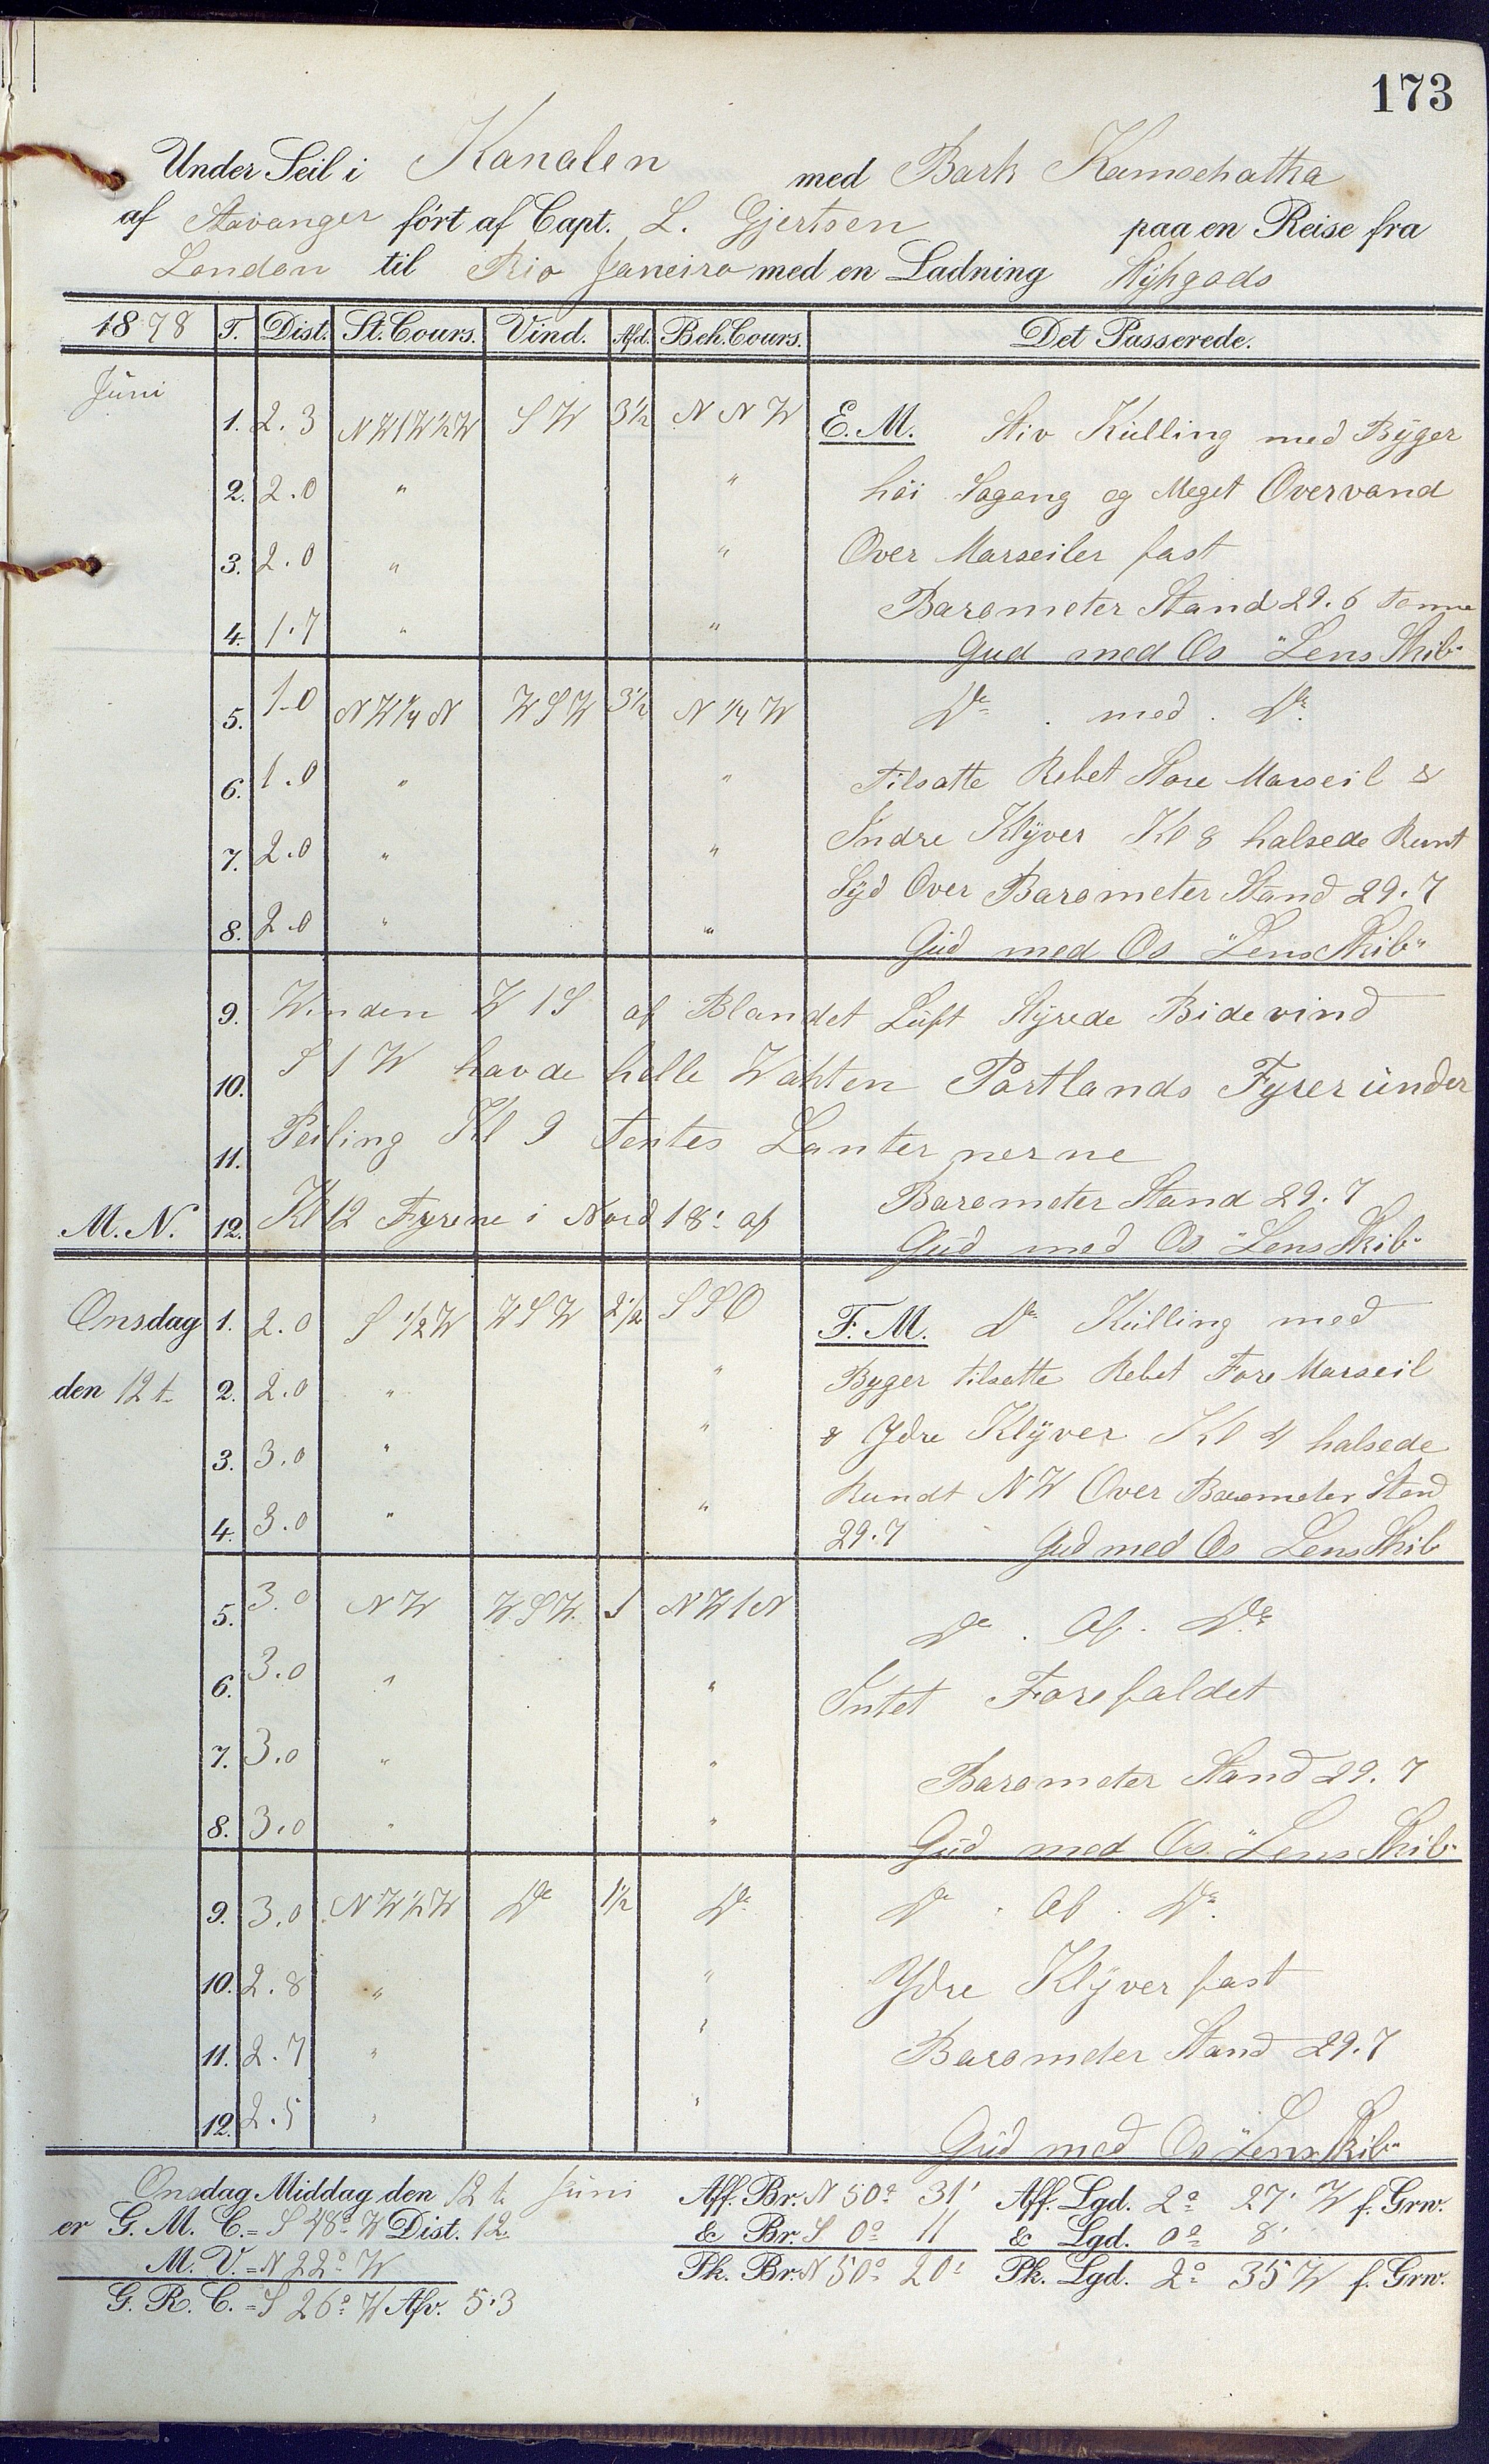 173
Under Seil i Kanalen med Bark Kamschatka
af Stavanger ført af Capt. L. Gjertsen paa en Reise fra
London til Rio Janeiro med en Ladning Stÿkgods
1878 T. Dist. St. Cours. Vind. Afd. Beh. Cours. Det Passerede.
Juni
1. 2.3 NW1W½W SW 3½ NNW E.M. Stiv Kulling med Bÿger
2. 2.0 " " høi Søgang og Meget Overvand
3. 2.0 " " Over Marseiler fast
4. 1.7 " " Barometer Stand 29.6 Tomme
Gud med Os "Lens Skib"
5. 1.0 NW¼N WSW 3½ N¼W Do. med. Do.
6. 1.0 " " Tilsatte Rebet Store Marseil &
7. 2.0 " " Indre Klÿver Kl 8 halsede Runt
8. 2.0 " " Sÿd Over Barometer Stand 29.7
Gud med Os "Lens Skib"
9. Winden W1S af Blandet Luft Stÿrede Bidevind
10. S1W havde helle Wakten Portlands Fyrer under
11. Peiling Kl 9 Tentes Lanternerne
M.N. 12. Kl 12 Fyrene i Nord 18' af Barometer Stand 29.7
Gud med Os "Lens Skib"
Onsdag 1. 2.0 S½W WSW 2½ SSO F.M. Do Kulling med
den 12t. 2. 2.0 " " Byger tilsatte Rebet Fore Marseil
3. 3.0 " " & Ydre Klÿver Kl 4 halsede
4. 3.0 " " Rundt NW Over Barometer Stand
29.7 Gud med Os Lens Skib
5. 3.0 NW WSW. 1 NW1N Do. Af. Do.
6. 3.0 " " Intet Forefaldet
7. 3.0 " " Barometer Stand 29.7
8. 3.0 " " Gud med Os "Lens Skib"
9. 3.0 NW½W Do 1½ Do. Do. Af. Do.
10. 2.8 " " Ydre Klÿver fast
11. 2.7 " " Barometer Stand 29.7
12. 2.5 " " Gud med Os "Lens Skib"
Onsdag Middag den 12t. Juni Aff. Br. N 50° 31' Aff. Lgd. 2° 27' W f. Grw.
er G. M. C. = S 48° W Dist. 12. & Br. S 0° 11 & Lgd. 0° 8'
M. V. = N 22° W Pk. Br. N 50° 20' Pk. Lgd. 2° 35 W f. Grw.
G. R. C. = S 26° W Afv. 5.3